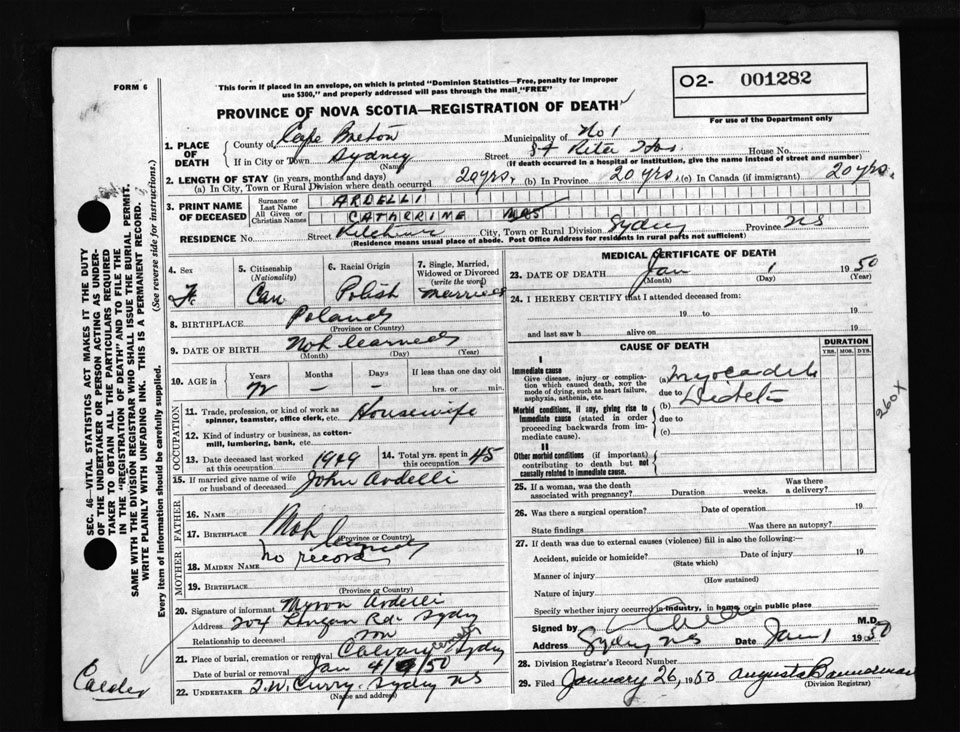 FORM 6
This form if placed in an envelope, on which is printed "Dominion Statistics—Free, penalty for improper
use $300," and properly addressed will pass through the mail "FREE"
O2- 001282
For use of the Department only
PROVINCE OF NOVA SCOTIA—REGISTRATION OF DEATH
1. PLACE OF DEATH County of Cape Breton Municipality of No 1
If in City or Town Sydney (Name) Street St Rita Hos. House No.
(If death occurred in a hospital or institution, give the name instead of street and number)
2. LENGTH OF STAY (in years, months and days)
(a) In City, Town or Rural Division where death occurred 20 yrs. (b) In Province 20 yrs. (c) In Canada (if immigrant) 20 yrs.
3. PRINT NAME OF DECEASED Surname or Last Name ARDELLI
All Given or Christian Names CATHERINE MRS
RESIDENCE No. Street City, Town or Rural Division Sydney Province NS
(Residence means usual place of abode. Post Office Address for residents in rural parts not sufficient)
4. Sex F.
5. Citizenship (Nationality) Can
6. Racial Origin Polish
7. Single, Married, Widowed or Divorced (write the word) Married
8. BIRTHPLACE Poland
(Province or Country)
9. DATE OF BIRTH Not learned
(Month) (Day) (Year)
10. AGE in Years Months Days If less than one day old
72 — — hrs. or min.
OCCUPATION
11. Trade, profession, or kind of work as spinner, teamster, office clerk, etc. Housewife
12. Kind of industry or business, as cotton-mill, lumbering, bank, etc.
13. Date deceased last worked at this occupation 1949 14. Total yrs. spent in this occupation 45
15. If married give name of wife or husband of deceased John Ardelli
FATHER
16. NAME
17. BIRTHPLACE Not learned
(Province or Country)
MOTHER
18. MAIDEN NAME no record
19. BIRTHPLACE
(Province or Country)
20. Signature of informant Myron Ardelli
Address 204 Lingan Rd. Sydney
Relationship to deceased son
21. Place of burial, cremation or removal Calvary Cemetery Sydney
Date of burial or removal Jan 4/50
22. UNDERTAKER Curry. Sydney NS
(Name and address)
MEDICAL CERTIFICATE OF DEATH
23. DATE OF DEATH Jan 1 1950
(Month) (Day) (Year)
24. I HEREBY CERTIFY that I attended deceased from:
19 to 19
and last saw h alive on 19
CAUSE OF DEATH
DURATION
YRS. MOS. DYS.
I
Immediate cause
Give disease, injury or complication which caused death, NOT the mode of dying, such as heart failure, asphyxia, asthenia, etc.
(a)
due to
Morbid conditions, if any, giving rise to immediate cause (stated in order proceeding backwards from immediate cause).
(b)
due to
(c)
II
Other morbid conditions (if important) contributing to death but not causally related to immediate cause.
260X
25. If a woman, was the death associated with pregnancy? Duration weeks. Was there a delivery?
26. Was there a surgical operation? Date of operation 19
State findings Was there an autopsy?
27. If death was due to external causes (violence) fill in also the following:—
Accident, suicide or homicide? Date of injury 19
(State which)
Manner of injury
(How sustained)
Nature of injury
Specify whether injury occurred in industry, in home, or in public place
Signed by M.D.
Address Sydney NS Date Jan 1 1950
28. Division Registrar's Record Number
29. Filed January 26, 1950 Augusta Bannerman
(Division Registrar)
SEC. 46—VITAL STATISTICS ACT MAKES IT THE DUTY
OF THE UNDERTAKER OR PERSON ACTING AS UNDER-
TAKER TO OBTAIN ALL THE PARTICULARS REQUIRED
IN THE "REGISTRATION OF DEATH" AND TO FILE THE
SAME WITH THE DIVISION REGISTRAR WHO SHALL ISSUE THE BURIAL PERMIT.
WRITE PLAINLY WITH UNFADING INK. THIS IS A PERMANENT RECORD.
Every item of information should be carefully supplied. (See reverse side for instructions.)
Calder